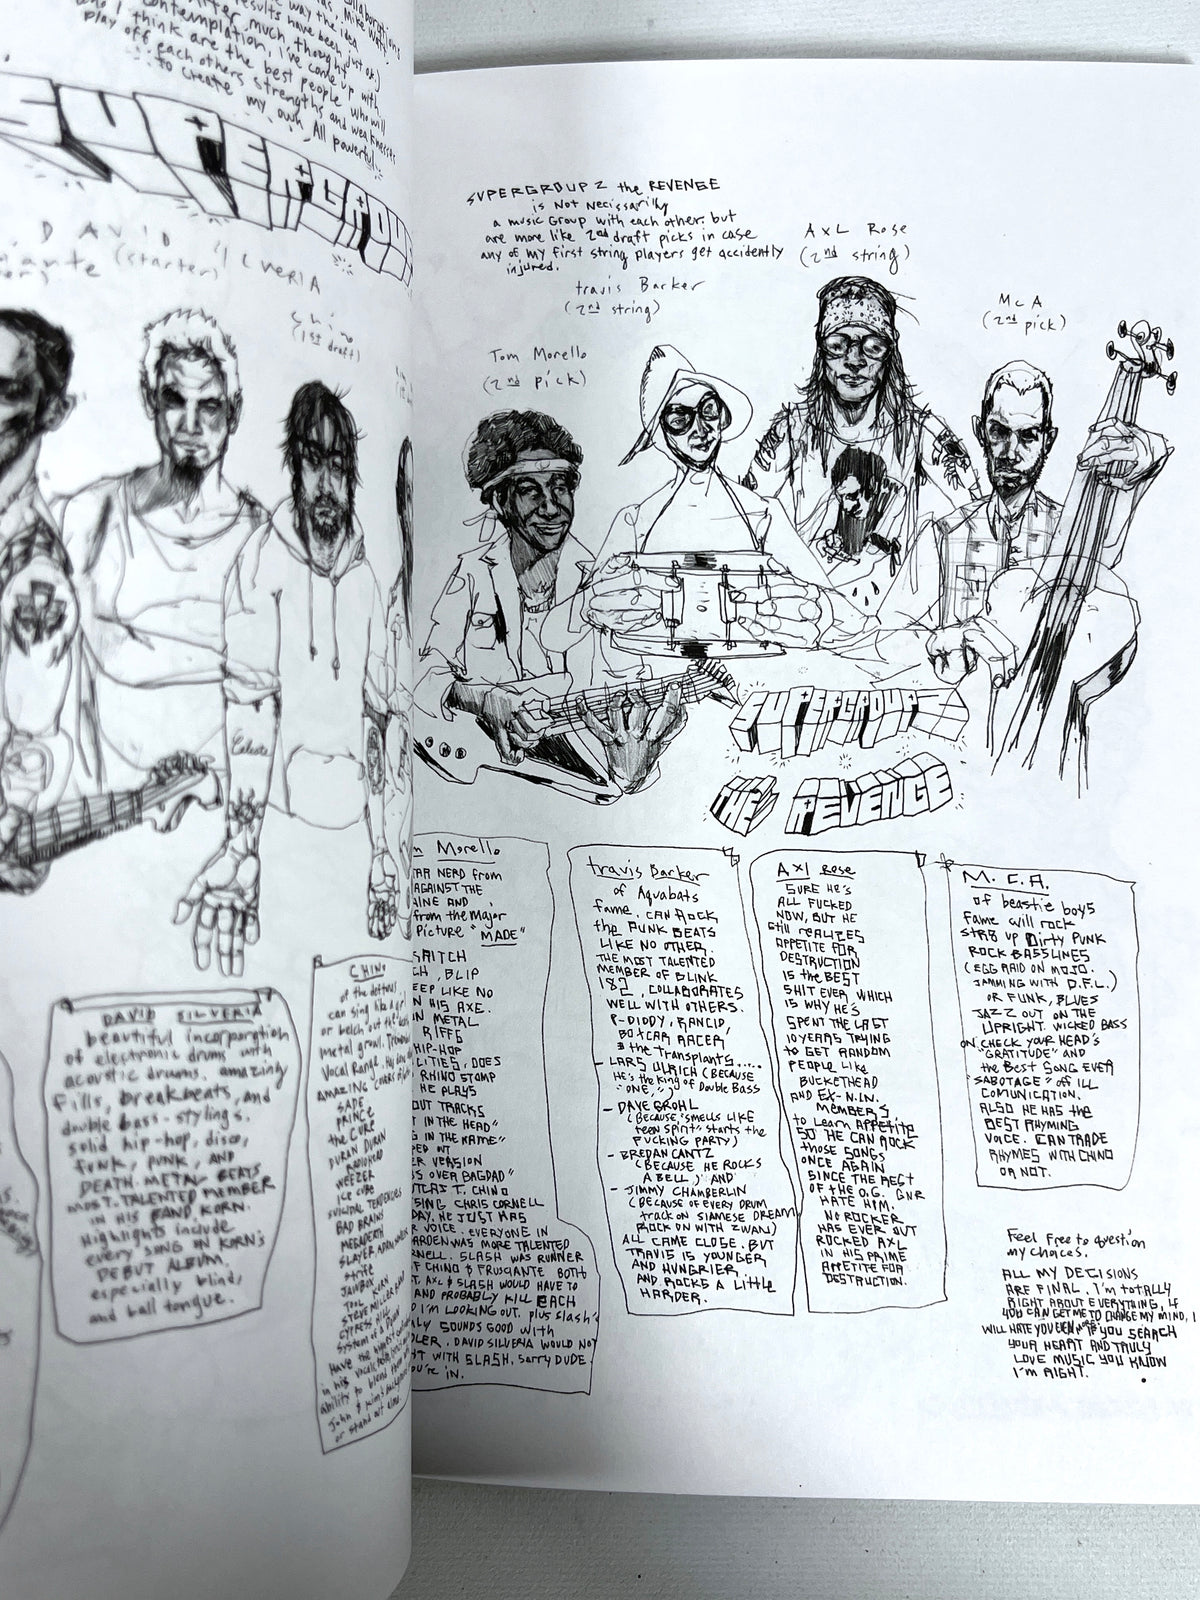 collaborations
Mike Watt,
way the idea
results have been just ok.)
After much thought
contemplation, I've come up with
who I think are the best people who will
play off each others strengths and weaknesses
to create my own, All powerful
SUPERGROUP
DAVID SILVERIA
(starter)
Chino
(1st draft)
Celeste
DAVID SILVERIA
beautiful incorporation
of electronic drums with
acoustic drums. amazing
fills, breakbeats, and
double bass-stylings.
solid hip-hop, disco,
funk, punk, AND
DEATH METAL BEATS
MOST TALENTED MEMBER
IN HIS BAND KORN.
Highlights include
every song on KORN'S
DEBUT ALBUM.
especially blind,
and ball tongue.
CHINO
of the deftones
can sing like a
or belch out the
metal growl.
Vocal Range.
AMAZING
SADE,
PRINCE
the CURE
DURAN DURAN
RADIOHEAD
WEEZER
ICE CUBE
SUICIDAL TENDENCIES
BAD BRAINS
MEGADETH
SLAYER
Strife
JAWBOX
TOOL
STEVE MILLER
CYPRESS HILL
System of a Down
Have the
in his vocal
ability to blend
John &
or stand out alone.
SUPERGROUP 2 the REVENGE
is Not Necissarilly
a music Group with each other. but
are more like 2nd draft picks in case
any of my first string players get accidently
injured.
Axl Rose
(2nd string)
travis Barker
(2nd string)
McA
(2nd pick)
Tom Morello
(2nd pick)
SUPERGROUP 2
THE REVENGE
m Morello
TAR NERD from
AGAINST THE
INE AND
from the Major
Picture "MADE"
SCRATCH
CH, BLIP
EEP LIKE NO
N HIS AXE.
N METAL
RIFFS
HIP-HOP
LITIES, DOES
RHINO STOMP
HE PLAYS
OUT TRACKS
T IN THE HEAD"
G IN THE NAME"
PED OUT
ER VERSION
S OVER BAGDAD"
UTLAS T. CHINO
SING CHRIS CORNELL
DAY. HE JUST HAS
R VOICE. EVERYONE IN
ARDEN WAS MORE TALENTED
RNELL. SLASH WAS RUNNER
F CHINO & FRUSCIANTE BOTH
T. AXL & SLASH WOULD HAVE TO
AND PROBABLY KILL EACH
O I'M LOOKING OUT. plus Slash's
LY SOUNDS GOOD with
DLER. DAVID SILVERIA WOULD NOT
HT WITH SLASH. Sorry DUDE.
OU'RE IN.
travis Barker
of Aquabats
fame. CAN ROCK
the PUNK BEATS
LIKE NO OTHER.
THE MOST TALENTED
MEMBER OF BLINK
182, COLLABORATES
WELL WITH OTHERS.
P-DIDDY, RANCID,
BOXCAR RACER,
& the Transplants....
- LARS ULRICH (BECAUSE
HE'S the King of Double Bass
"ONE,")
- DAVE GROHL
(BECAUSE "SMELLS LIKE
teen SPIRIT" starts the
FUCKING PARTY)
- BREDAN CANTZ
(BECAUSE HE ROCKS
A BELL,) AND
- JIMMY CHAMBERLIN
(BECAUSE OF EVERY DRUM
track ON SIAMESE DREAM
ROCK ON WITH ZWAN)
ALL CAME CLOSE. BUT
TRAVIS IS YOUNGER
AND HUNGRIER,
AND ROCKS A Little
HARDER.
AXl Rose
SURE HE'S
ALL FUCKED
NOW, BUT HE
Still REALIZES
APPETITE FOR
DESTRUCTION
IS the BEST
SHIT EVER, WHICH
IS WHY HE'S
SPENT THE LAST
10 YEARS TRYING
to GET RANDOM
PEOPLE LIKE
BUCKETHEAD
AND EX-N.I.N.
MEMBERS,
to Learn APPETITE
SO HE CAN ROCK
those SONGS
ONCE AGAIN
SINCE THE REST
OF the O.G. GNR
HATE HIM.
NO ROCKER
HAS EVER OUT
ROCKED AXL
IN HIS PRIME
APPETITE FOR
DESTRUCTION.
M.C.A.
of beastie boys
Fame will rock
str8 up Dirty PUNK
ROCK BASSLINES
(EGG RAID ON MOJO.
JAMMING WITH D.F.L.)
OR FUNK, BLUES
JAZZ OUT ON THE
UPRIGHT. WICKED BASS
ON CHECK YOUR HEAD'S
"GRATITUDE" AND
the BEST SONG EVER
"SABOTAGE" off ILL
COMUNICATION.
ALSO HE HAS the
BEST RHYMING
VOICE. CAN TRADE
RHYMES WITH CHINO
OR NOT.
Feel Free to question
my choices.
ALL MY DECISIONS
ARE FINAL. I'm totally
RIGHT ABOUT EVERYTHING, IF
YOU CAN GET ME TO CHANGE MY MIND, I
WILL HATE YOU EVEN MORE. IF YOU SEARCH
YOUR HEART AND TRULY
LOVE MUSIC YOU KNOW
I'M RIGHT.